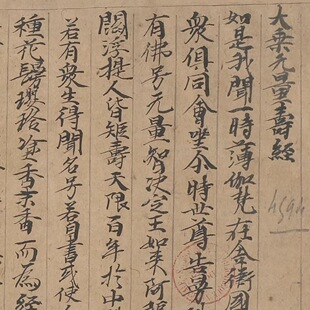 大乗无量壽經
如是我聞一時薄伽梵在舍衛國
衆俱同會坐尒時世尊告曼
有佛号无量智决定王如来阿耨
閻浮提人皆短壽大限百年於中
若有衆生得聞名号若自書或使人
種花鬘瓔珞塗香末香而為經